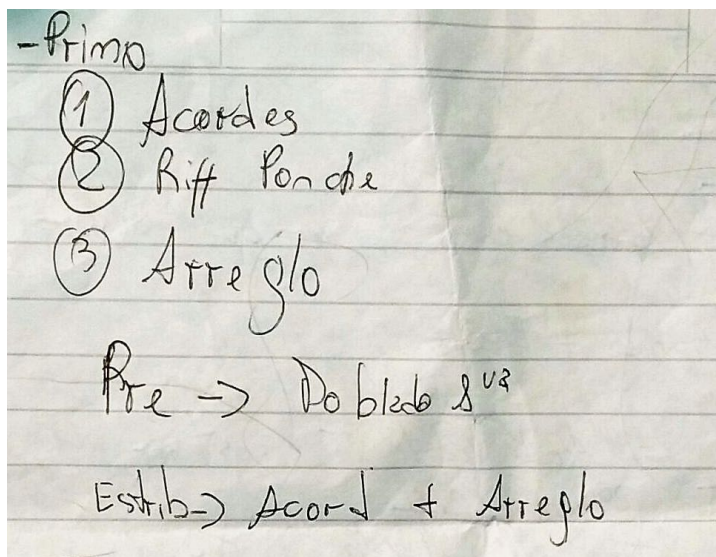 - Primo
① Acordes
② Riff Ponche
③ Arreglo
Pre -> Doblado 8va
Estrib -> Acord + Arreglo